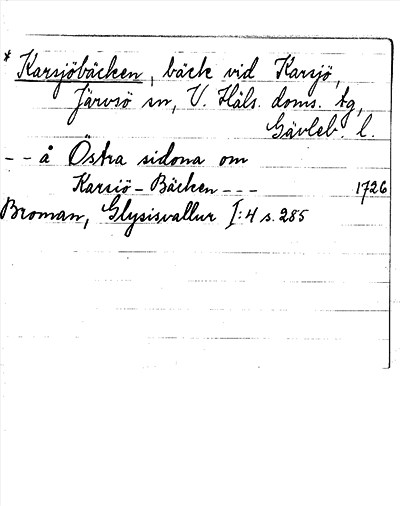 * Karsjöbäcken, bäck vid Karsjö,
Järvsö sn, V. Häls. doms. tg,
Gävleb. l.
- - å Östra sidona om
Karsiö - Bäcken - - - 1726
Broman, Glysisvallur I:4 s. 285